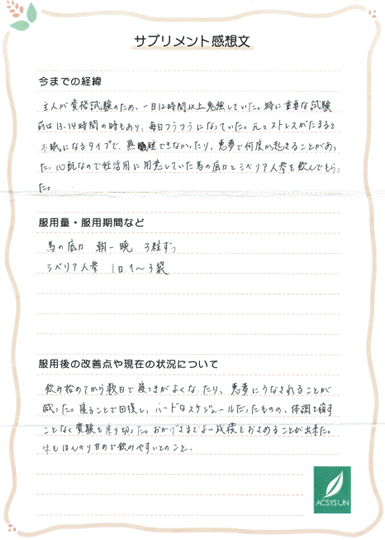 サプリメント感想文
今までの経緯
主人が資格試験のため、一日12時間以上勉強していた。特に重要な試験
前は13、14時間の時もあり、毎日フラフラになっていた。元々ストレスがたまると
不眠になるタイプで、熟睡できなかったり、悪夢で何度か起きることがあっ
た。心配なので妊活用に用意していた馬の底力とシベリア人参を飲んでもらっ
た。
服用量・服用期間など
馬の底力 朝・晩 3粒ずつ
シベリア人参 1日1〜3袋
服用後の改善点や現在の状況について
飲み始めてから数日で寝つきがよくなったり、悪夢にうなされることが
減った。寝ることで回復し、ハードなスケジュールだったものの、体調を崩す
ことなく受験を乗り切った。おかげさまでよい成績をおさめることが出来た。
味もほんのり甘めで飲みやすいとのこと。
ACSYSUN